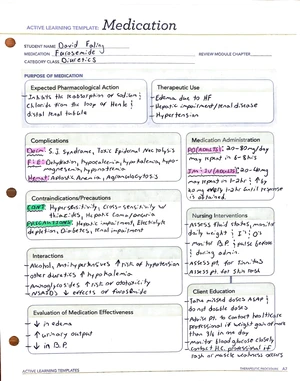 ACTIVE LEARNING TEMPLATE: Medication
STUDENT NAME David Ealing
MEDICATION Furosemide REVIEW MODULE CHAPTER
CATEGORY CLASS Diuretics
PURPOSE OF MEDICATION
Expected Pharmacological Action
- Inhibits the reabsorption of sodium &
Chloride from the loop of Henle &
distal renal tubule
Therapeutic Use
- Edema due to HF
- Hepatic impairment/renal disease
- Hypertension
Complications
Derm: S.J. Syndrome, Toxic Epidermal Necrolysis
F&E: Dehydration, hypocalcemia, hypokalemia, hypo-
magnesemia, hyponatremia
Hemat: Aplastic Anemia, Agranulocytosis
Medication Administration
PO (ADULTS): 20-80 mg/day
may repeat in 6-8 hrs
IM/IV (ADULTS): 20-40 mg
may repeat in 1-2 hr & ↑ by
20 mg every 1-2 hr until response
is obtained.
Contraindications/Precautions
CONT: Hypersensitivity, cross-sensitivity w/
thiazides, Hepatic coma/anuria
PRECAUTIONS: Hepatic impairment, Electrolyte
depletion, Diabetes, renal impairment
Nursing Interventions
- Assess fluid status, monitor
daily weight & I's & O's
- Monitor B.P. & pulse before
& during admin.
- Assess pt. for tinnitus
- Assess pt. for skin rash
Interactions
- Alcohol, Antihypertensives ↑ risk of hypotension
- other diuretics ↑ hypokalemia
- Aminoglycosides ↑ risk of ototoxicity
- NSAIDS ↓ effects of furosemide
Client Education
- Take missed doses ASAP &
do not double doses
- Advise pt. to contact healthcare
professional if weight gain of more
than 3 lb in one day
- monitor blood glucose closely
- contact H.C. professional if
rash or muscle weakness occurs
Evaluation of Medication Effectiveness
- ↓ in edema
- ↑ urinary output
- ↓ in B.P.
ACTIVE LEARNING TEMPLATES
THERAPEUTIC PROCEDURE A7